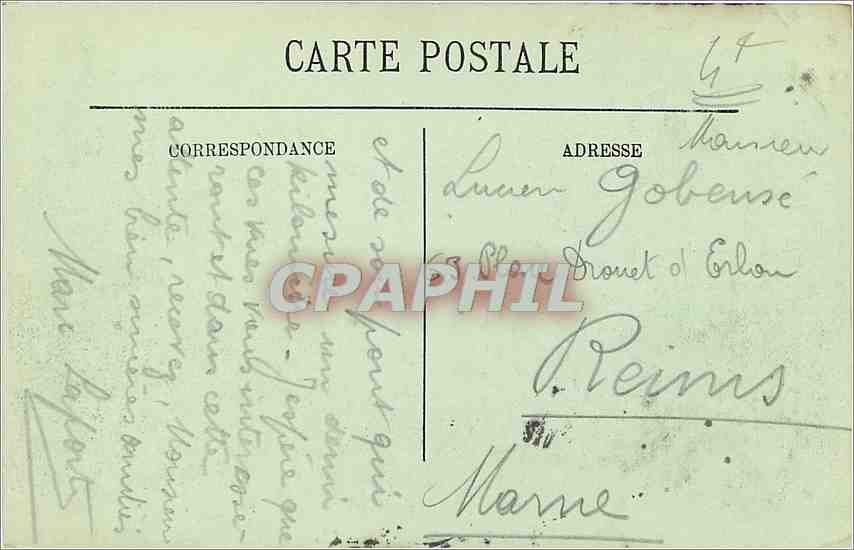 CARTE POSTALE
CORRESPONDANCE
et de son pont qui
mesure un demi
kilomètre - J'espère que
ces vues vous intéresse-
ront et dans cette
attente, recevez, Monsieur
mes bien sincères amitiés
Marc Laporte
ADRESSE
Monsieur
Lucien Gobeusé
63 Place Drouet d'Erlon
Reims
Marne
CPAPHIL